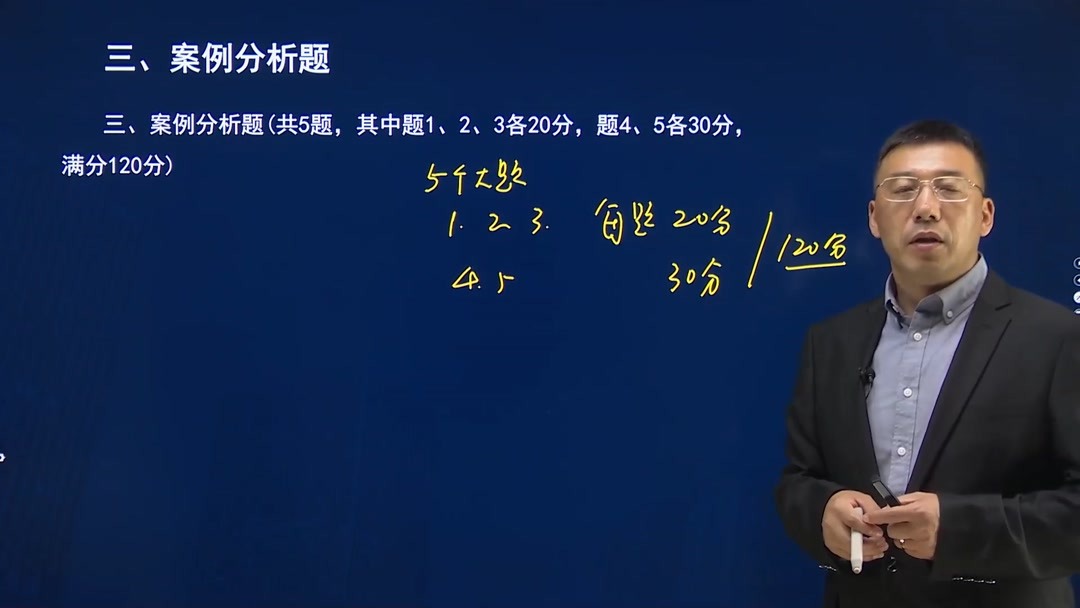 三、案例分析题
三、案例分析题(共5题，其中题1、2、3各20分，题4、5各30分，
满分120分)
5个大题
1. 2 3. 每题 20分
120分
4. 5 30分